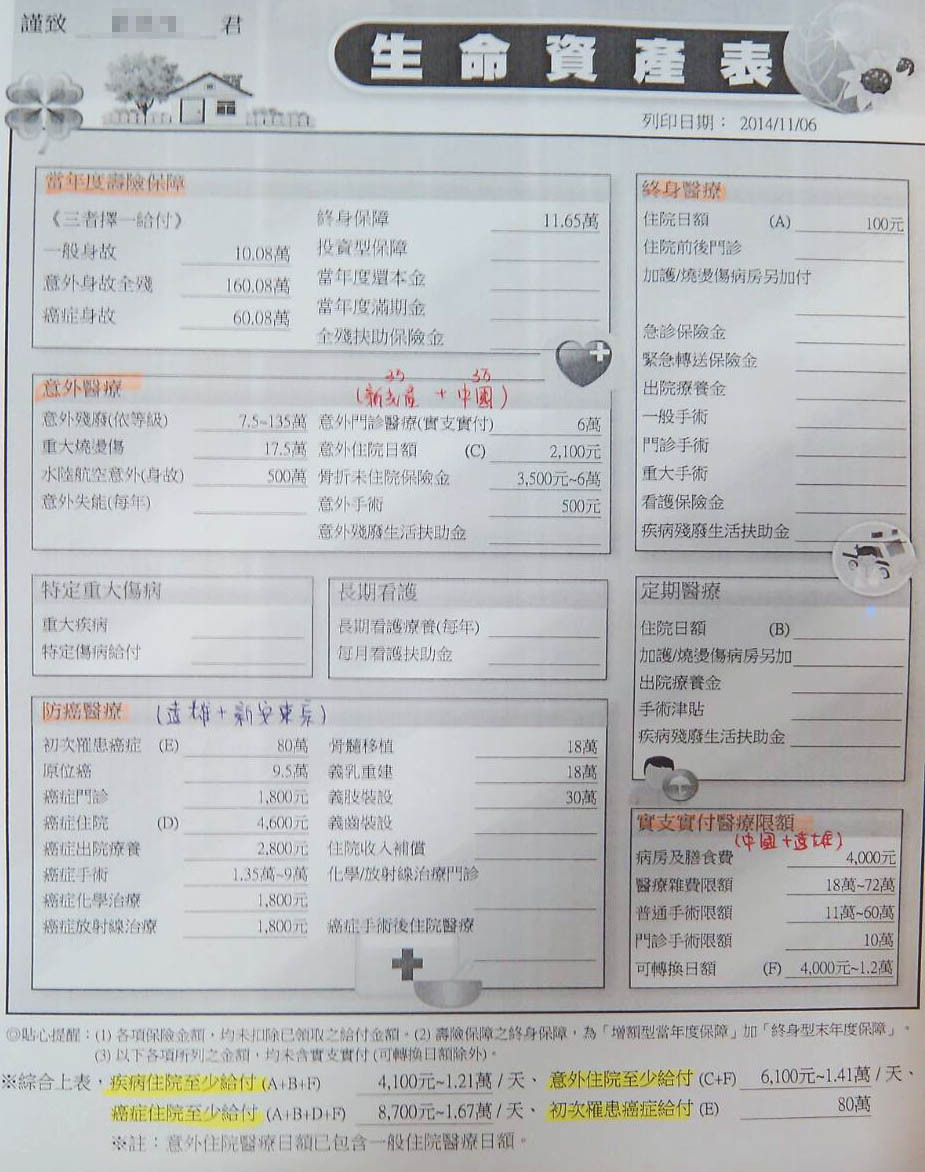 謹致 君
生命資產表
列印日期： 2014/11/06
當年度壽險保障
《三者擇一給付》
一般身故 10.08萬
意外身故全殘 160.08萬
癌症身故 60.08萬
終身保障 11.65萬
投資型保障
當年度還本金
當年度滿期金
全殘扶助保險金
終身醫療
住院日額 (A) 100元
住院前後門診
加護/燒燙傷病房另加付
急診保險金
緊急轉送保險金
出院療養金
一般手術
門診手術
重大手術
看護保險金
疾病殘廢生活扶助金
意外醫療
35 35
(新光產 + 中國)
意外殘廢(依等級) 7.5~135萬
重大燒燙傷 17.5萬
水陸航空意外(身故) 500萬
意外失能(每年)
意外門診醫療(實支實付) 6萬
意外住院日額 (C) 2,100元
骨折未住院保險金 3,500元~6萬
意外手術 500元
意外殘廢生活扶助金
特定重大傷病
重大疾病
特定傷病給付
長期看護
長期看護療養(每年)
每月看護扶助金
定期醫療
住院日額 (B)
加護/燒燙傷病房另加
出院療養金
手術津貼
疾病殘廢生活扶助金
防癌醫療 (遠雄+新安東京)
初次罹患癌症 (E) 80萬
原位癌 9.5萬
癌症門診 1,800元
癌症住院 (D) 4,600元
癌症出院療養 2,800元
癌症手術 1.35萬~9萬
癌症化學治療 1,800元
癌症放射線治療 1,800元
骨髓移植 18萬
義乳重建 18萬
義肢裝設 30萬
義齒裝設
住院收入補償
化學/放射線治療門診
癌症手術後住院醫療
實支實付醫療限額
(中國+遠雄)
病房及膳食費 4,000元
醫療雜費限額 18萬~72萬
普通手術限額 11萬~60萬
門診手術限額 10萬
可轉換日額 (F) 4,000元~1.2萬
◎貼心提醒：(1) 各項保險金額，均未扣除已領取之給付金額。(2) 壽險保障之終身保障，為「增額型當年度保障」加「終身型末年度保障」。
(3) 以下各項所列之金額，均未含實支實付 (可轉換日額除外)。
※綜合上表，疾病住院至少給付 (A+B+F) 4,100元~1.21萬 / 天、 意外住院至少給付 (C+F) 6,100元~1.41萬 / 天、
癌症住院至少給付 (A+B+D+F) 8,700元~1.67萬 / 天、 初次罹患癌症給付 (E) 80萬
※註：意外住院醫療日額已包含一般住院醫療日額。